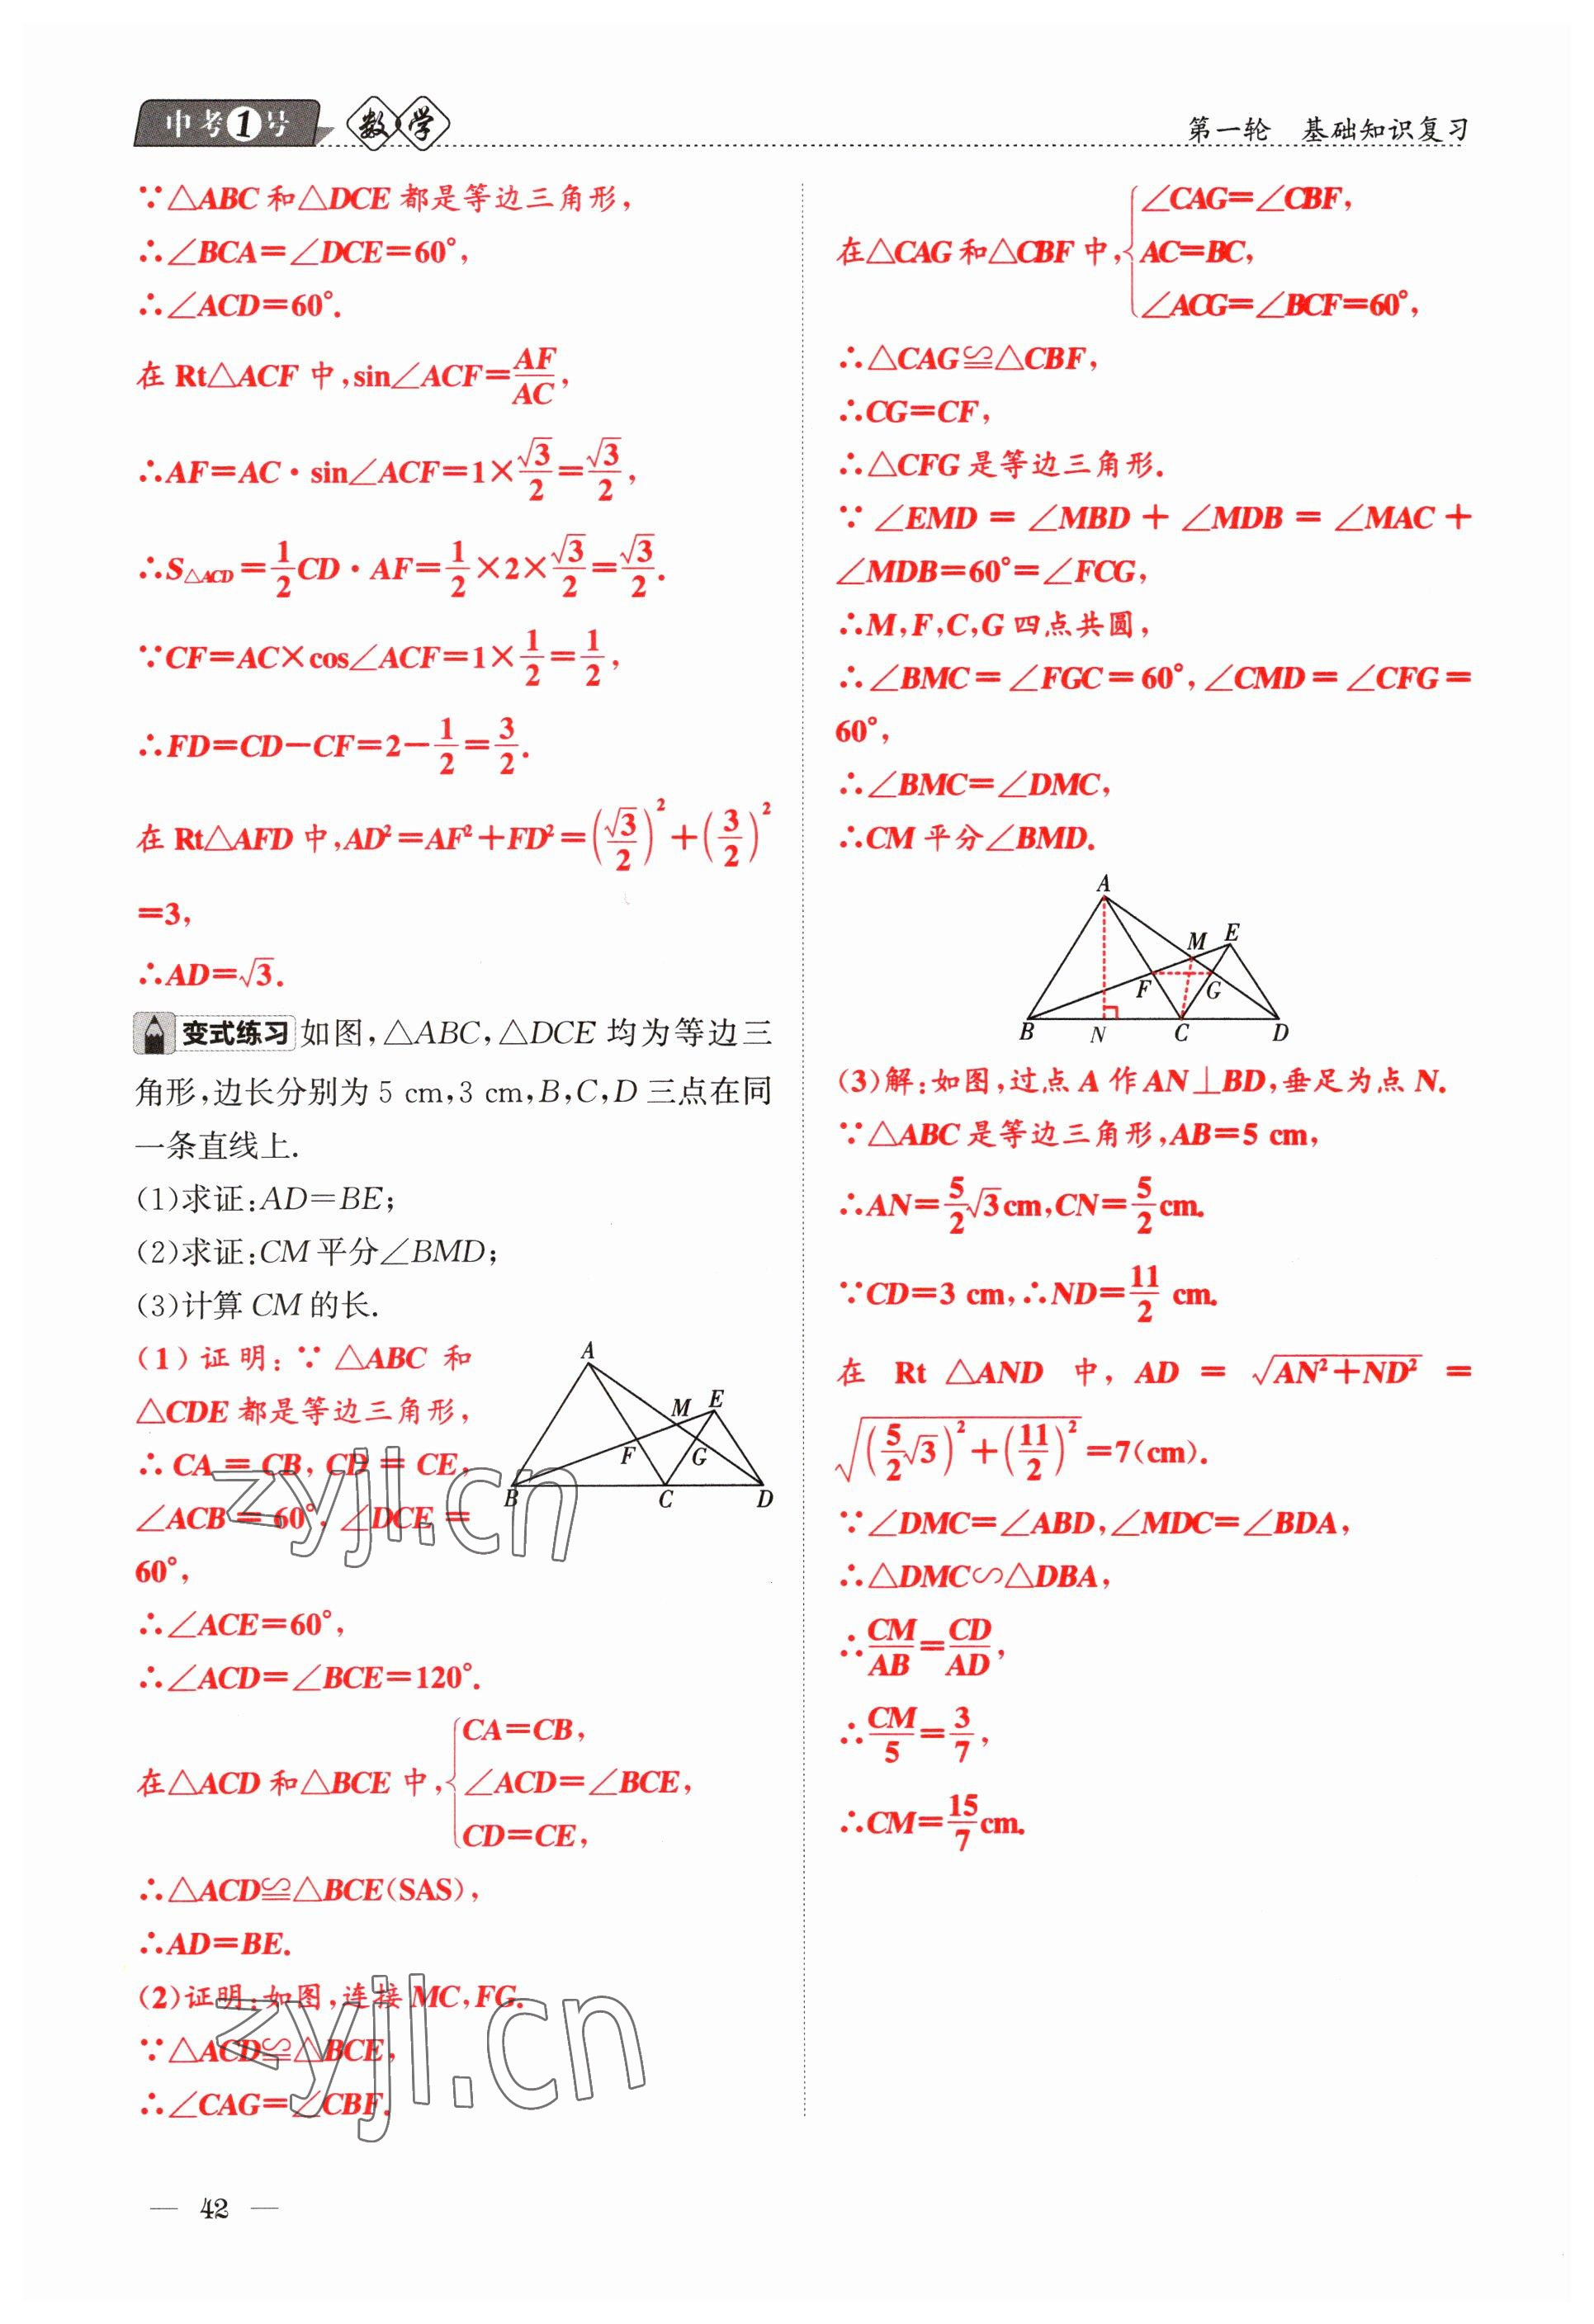 中考1号 数学
第一轮 基础知识复习
∵△ABC和△DCE都是等边三角形,
∴∠BCA=∠DCE=60°,
∴∠ACD=60°.
在Rt△ACF中,sin∠ACF=AF/AC,
∴AF=AC·sin∠ACF=1×√3/2=√3/2,
∴S△ACD=1/2CD·AF=1/2×2×√3/2=√3/2.
∵CF=AC×cos∠ACF=1×1/2=1/2,
∴FD=CD-CF=2-1/2=3/2.
在Rt△AFD中,AD²=AF²+FD²=(√3/2)²+(3/2)²
=3,
∴AD=√3.
变式练习 如图,△ABC,△DCE均为等边三
角形,边长分别为5 cm,3 cm,B,C,D三点在同
一条直线上.
(1)求证:AD=BE;
(2)求证:CM平分∠BMD;
(3)计算CM的长.
(1)证明:∵△ABC和
△CDE都是等边三角形,
∴CA=CB,CD=CE,
∠ACB=60°,∠DCE=
60°,
A
M
E
F
G
B
C
D
∴∠ACE=60°,
∴∠ACD=∠BCE=120°.
在△ACD和△BCE中,{CA=CB,
∠ACD=∠BCE,
CD=CE,
∴△ACD≌△BCE(SAS),
∴AD=BE.
(2)证明:如图,连接MC,FG.
∵△ACD≌△BCE,
∴∠CAG=∠CBF.
在△CAG和△CBF中,{∠CAG=∠CBF,
AC=BC,
∠ACG=∠BCF=60°,
∴△CAG≌△CBF,
∴CG=CF,
∴△CFG是等边三角形.
∵∠EMD=∠MBD+∠MDB=∠MAC+
∠MDB=60°=∠FCG,
∴M,F,C,G四点共圆,
∴∠BMC=∠FGC=60°,∠CMD=∠CFG=
60°,
∴∠BMC=∠DMC,
∴CM平分∠BMD.
A
M
E
F
G
B
N
C
D
(3)解:如图,过点A作AN⊥BD,垂足为点N.
∵△ABC是等边三角形,AB=5 cm,
∴AN=5/2√3cm,CN=5/2cm.
∵CD=3 cm,∴ND=11/2 cm.
在Rt△AND中,AD=√(AN²+ND²)=
√((5/2√3)²+(11/2)²)=7(cm).
∵∠DMC=∠ABD,∠MDC=∠BDA,
∴△DMC∽△DBA,
∴CM/AB=CD/AD,
∴CM/5=3/7,
∴CM=15/7cm.
zyjl.cn
zyjl.cn
— 42 —